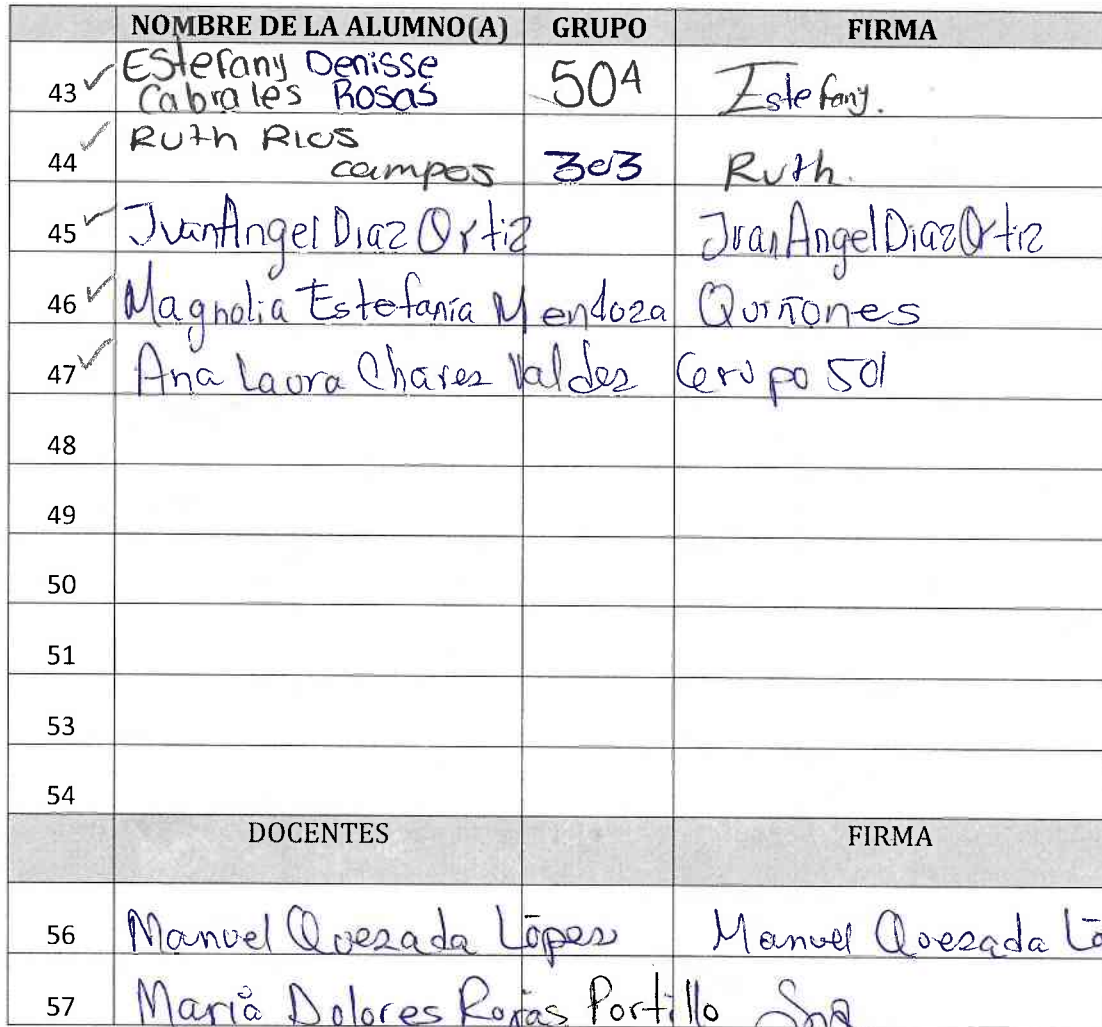 NOMBRE DE LA ALUMNO(A) GRUPO FIRMA
43 Estefany Denisse Cabrales Rosas 504 Estefany.
44 Ruth Rios campos 303 Ruth.
45 Juan Angel Diaz Ortiz Juan Angel Diaz Ortiz
46 Magnolia Estefanía Mendoza Quiñones
47 Ana Laura Chavez Valdez Grupo 501
48
49
50
51
53
54
DOCENTES FIRMA
56 Manuel Quezada López Manuel Quezada Ló
57 María Dolores Rojas Portillo